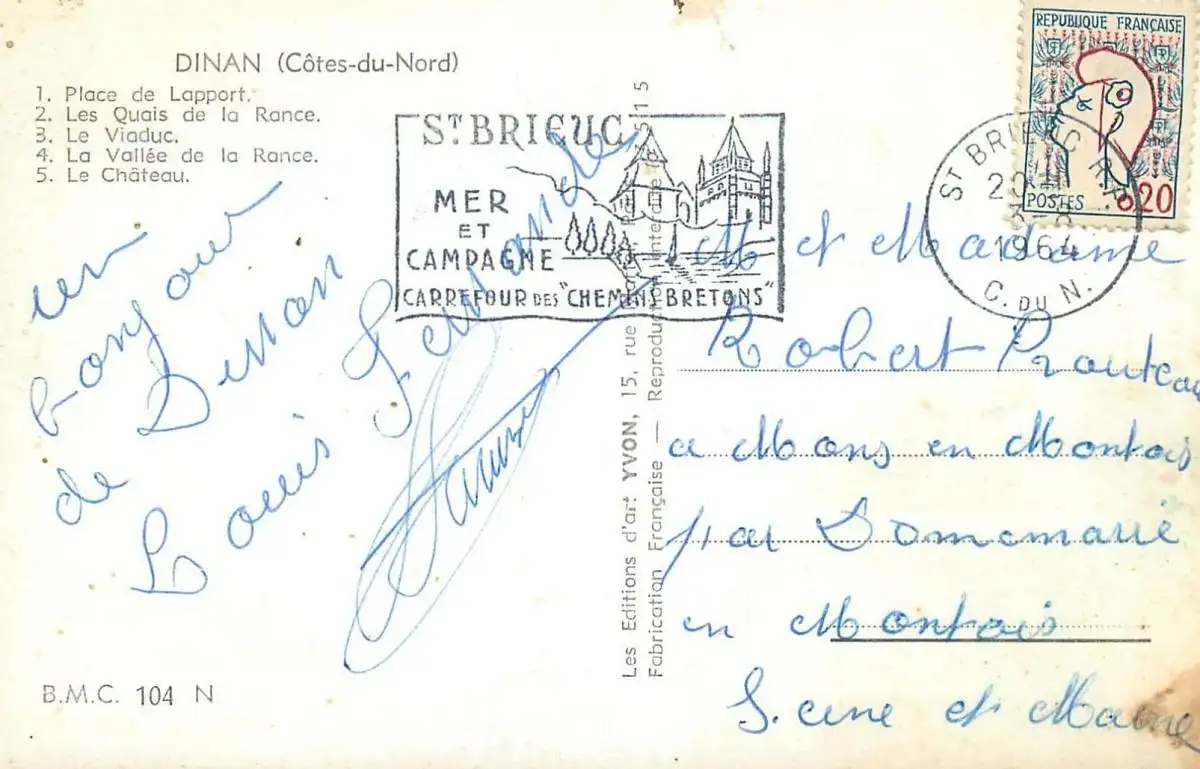 DINAN (Côtes-du-Nord)
1. Place de Lapport.
2. Les Quais de la Rance.
3. Le Viaduc.
4. La Vallée de la Rance.
5. Le Château.
ST BRIEUC
MER
ET
CAMPAGNE
CARREFOUR DES "CHEMINS BRETONS"
REPUBLIQUE FRANÇAISE
POSTES 0,20
ST BRIEUC R.P.
1964
C. DU N.
un
bonjour
de Dinan
Louis Fernande
Les Editions d'art YVON, 15, rue
Fabrication Française — Reproduction interdite
M et Madame
Robert Prouteau
a Mons en Montois
par Donemarie
en Montois
Seine et Marne
B.M.C. 104 N